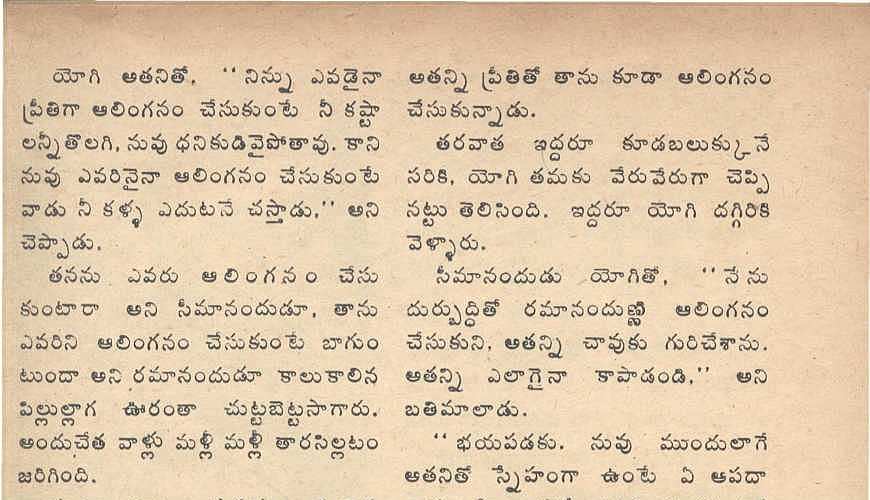 యోగి అతనితో, ‘‘నిన్ను ఎవడైనా
ప్రీతిగా ఆలింగనం చేసుకుంటే నీ కష్టా
లన్నీతొలగి, నువు ధనికుడివైపోతావు. కాని
నువు ఎవరినైనా ఆలింగనం చేసుకుంటే
వాడు నీ కళ్ళ ఎదుటనే చస్తాడు,’’ అని
చెప్పాడు.
తనను ఎవరు ఆలింగనం చేసు
కుంటారా అని సీమానందుడూ, తాను
ఎవరిని ఆలింగనం చేసుకుంటే బాగుం
టుందా అని రమానందుడూ కాలుకాలిన
పిల్లుల్లాగ ఊరంతా చుట్టబెట్టసాగారు.
అందుచేత వాళ్లు మళ్లీ మళ్లీ తారసిల్లటం
జరిగింది.
అతన్ని ప్రీతితో తాను కూడా ఆలింగనం
చేసుకున్నాడు.
తరవాత ఇద్దరూ కూడబలుక్కునే
సరికి, యోగి తమకు వేరువేరుగా చెప్పి
నట్టు తెలిసింది. ఇద్దరూ యోగి దగ్గిరికి
వెళ్ళారు.
సీమానందుడు యోగితో, ‘‘నేను
దుర్బుద్ధితో రమానందుణ్ణి ఆలింగనం
చేసుకుని, అతన్ని చావుకు గురిచేశాను.
అతన్ని ఎలాగైనా కాపాడండి,’’ అని
బతిమాలాడు.
‘‘భయపడకు. నువు ముందులాగే
అతనితో స్నేహంగా ఉంటే ఏ ఆపదా